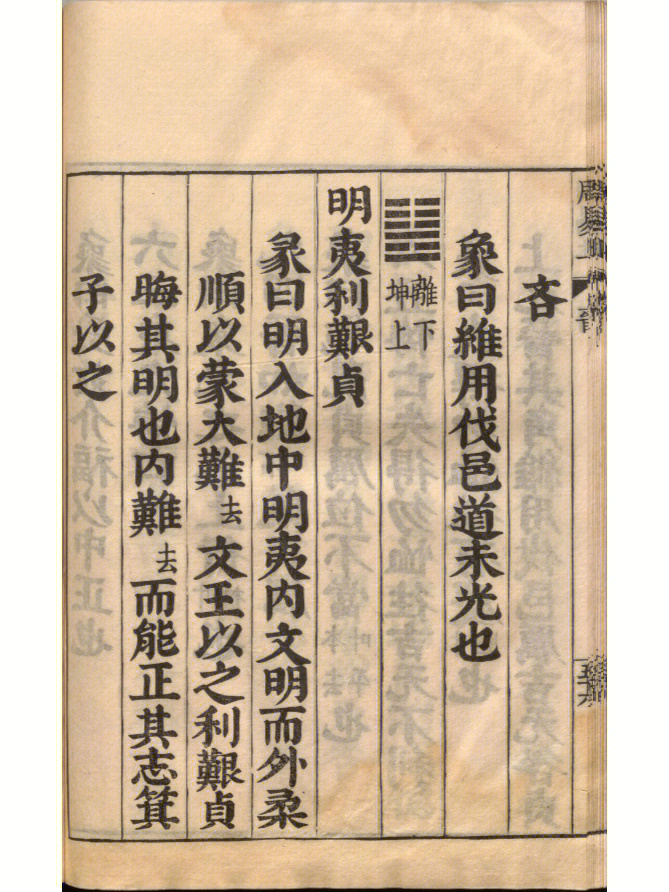 吝
象曰維用伐邑道未光也
䷣離下坤上
明夷利艱貞
彖曰明入地中明夷内文明而外柔
順以蒙大難去文王以之利艱貞
晦其明也内難去而能正其志箕
子以之